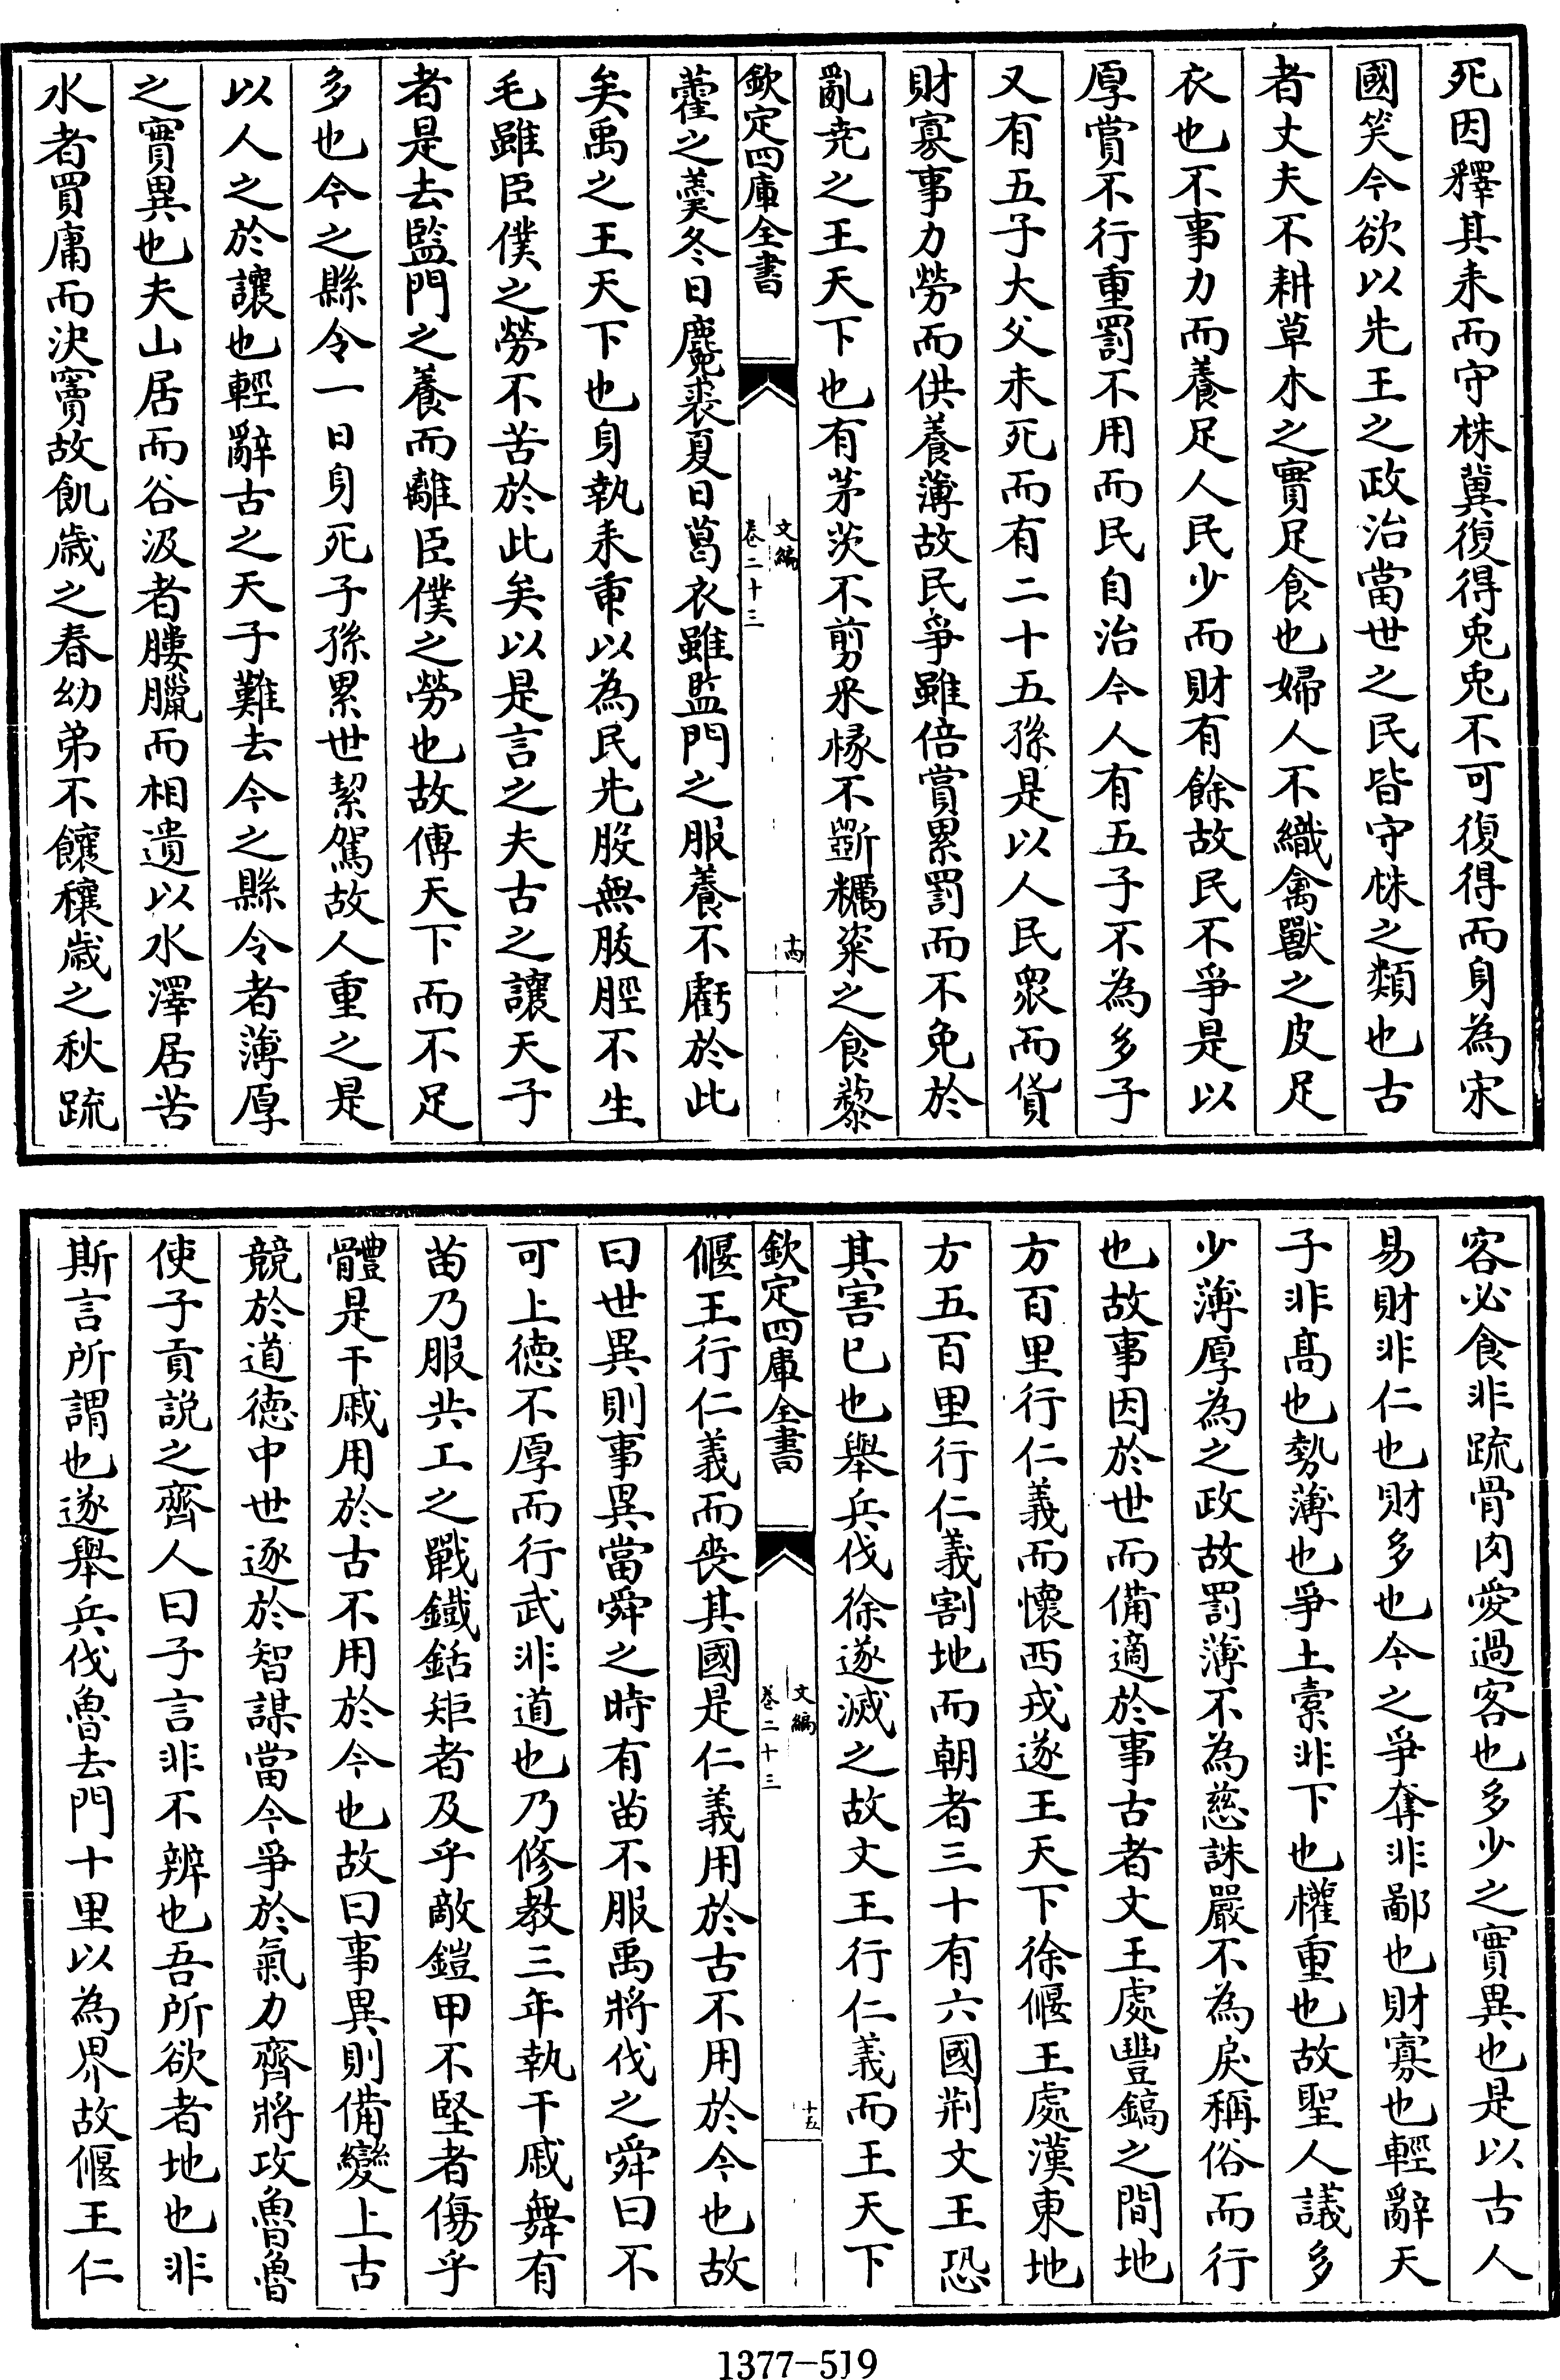 死因釋其耒而守株冀復得兎兎不可復得而身為宋
國笑今欲以先王之政治當世之民皆守株之類也古
者丈夫不耕草木之實足食也婦人不織禽獸之皮足
衣也不事力而養足人民少而財有餘故民不爭是以
厚賞不行重罰不用而民自治今人有五子不為多子
又有五子大父未死而有二十五孫是以人民衆而貨
財寡事力勞而供養薄故民爭雖倍賞累罰而不免於
亂堯之王天下也有茅茨不剪采椽不斵糲粢之食藜
欽定四庫全書
文編
卷二十三
十四
藿之羹冬日麑裘夏日葛衣雖監門之服養不虧於此
矣禹之王天下也身執耒臿以為民先股無胈脛不生
毛雖臣僕之勞不苦於此矣以是言之夫古之讓天子
者是去監門之養而離臣僕之勞也故傳天下而不足
多也今之縣令一日身死子孫累世絜駕故人重之是
以人之於讓也輕辭古之天子難去今之縣令者薄厚
之實異也夫山居而谷汲者膢臘而相遺以水澤居苦
水者買庸而決竇故飢歲之春幼弟不饟穰歲之秋疏
客必食非疏骨肉愛過客也多少之實異也是以古人
易財非仁也財多也今之爭奪非鄙也財寡也輕辭天
子非高也勢薄也爭土橐非下也權重也故聖人議多
少薄厚為之政故罰薄不為慈誅嚴不為戾稱俗而行
也故事因於世而備適於事古者文王處豐鎬之間地
方百里行仁義而懷西戎遂王天下徐偃王處漢東地
方五百里行仁義割地而朝者三十有六國荆文王恐
其害已也舉兵伐徐遂滅之故文王行仁義而王天下
欽定四庫全書
文編
卷二十三
十五
偃王行仁義而喪其國是仁義用於古不用於今也故
曰世異則事異當舜之時有苗不服禹將伐之舜曰不
可上德不厚而行武非道也乃修教三年執干戚舞有
苗乃服共工之戰鐵銛矩者及乎敵鎧甲不堅者傷乎
體是干戚用於古不用於今也故曰事異則備變上古
競於道德中世逐於智謀當今爭於氣力齊將攻魯魯
使子貢説之齊人曰子言非不辨也吾所欲者地也非
斯言所謂也遂舉兵伐魯去門十里以為界故偃王仁
1377-519